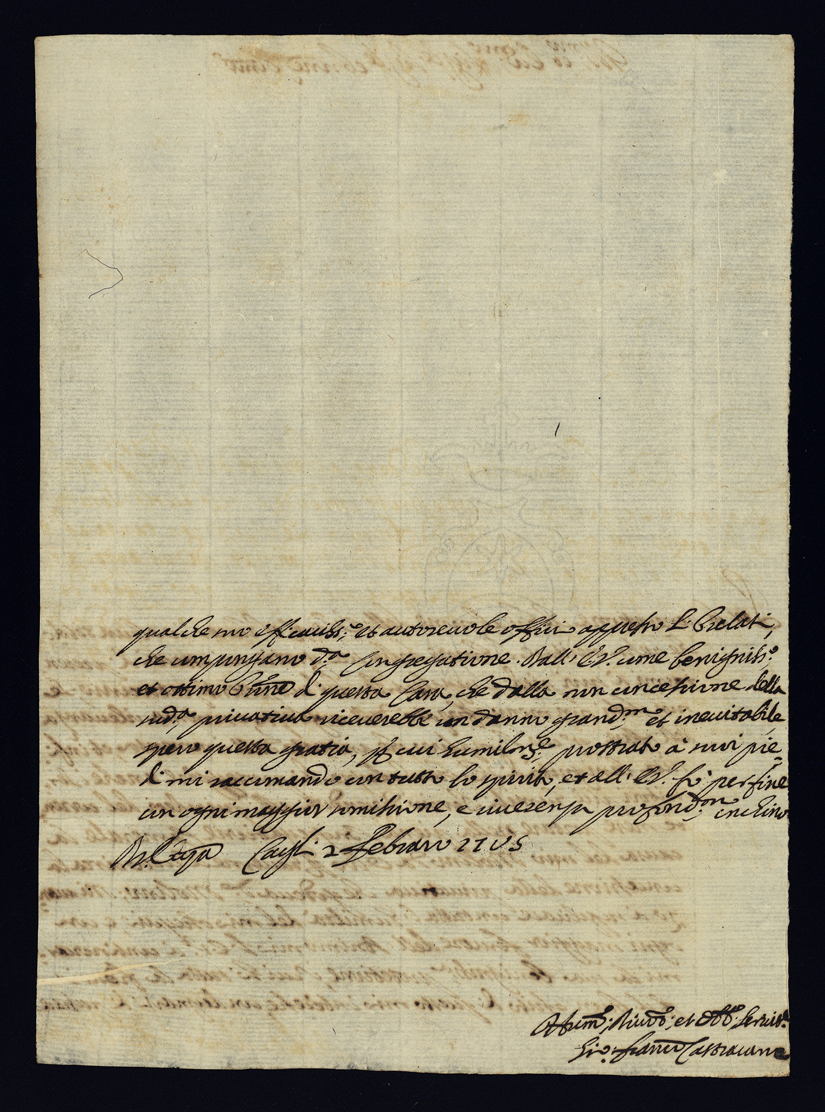 qualche suo efficaciss.º et autoreuole officio appresso li Prelati,
che compongano d.ª Congregatione. Dall' E.V. come benigniss.º
et ottimo P̃rone di questa Casa, che dalla non concessione della
sud.ª priuatiua riceuerebbe un danno grand.mo et inevitabile,
spero questa gratia, p cui humilm.te prostrato à suoi pie¬
di mi raccomando con tutto lo spirito, et all' E.V. fò per fine
con ogni maggior somissione, e riuerenza profond.mo inchino
Cagli 2 Febraro 1705
Humo: Diuo: et Obbo: Seruit.e
Gio: Franco Castracane